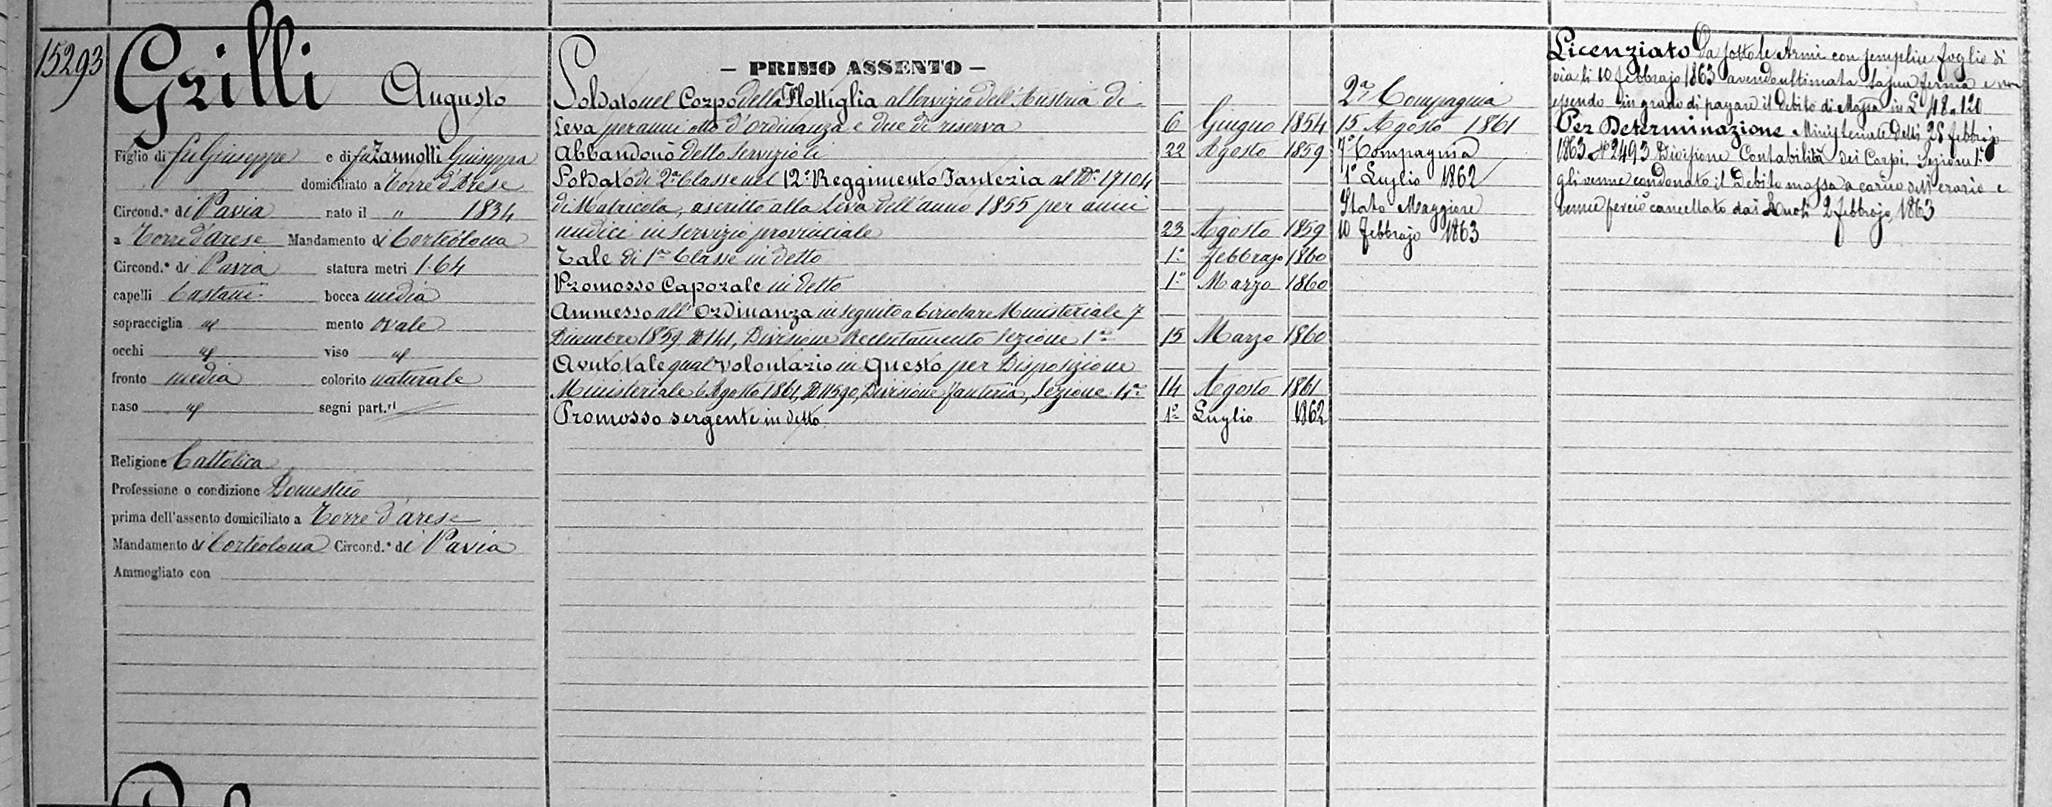 15293
Grilli Augusto
Figlio di fu Giuseppe e di fu Zannotti Giuseppa
domiciliato a Torre d'Arese
Circond.º di Pavia nato il " 1834
a Torre d'arese Mandamento di Corteolona
Circond.º di Pavia statura metri 1.64
capelli Castani bocca media
sopracciglia id mento ovale
occhi id viso id
fronte media colorito naturale
naso id segni part.ri
Religione Cattolica
Professione o condizione Domestico
prima dell'assento domiciliato a Torre d'arese
Mandamento di Corteolona Circond.º di Pavia
Ammogliato con
— PRIMO ASSENTO —
Soldato nel Corpo della Flottiglia al servizio dell'Austria di
Leva per anni otto d'ordinanza e due di riserva 6 Giugno 1854
Abbandonò detto servizio li 22 Agosto 1859
Soldato di 2ª Classe nel 12º Reggimento Fanteria al Nº 17104
di Matricola, ascritto alla Leva dell'anno 1855 per anni
undici in servizio provinciale 23 Agosto 1859
Tale di 1ª Classe in detto 1º Febbrajo 1860
Promosso Caporale in detto 1º Marzo 1860
Ammesso all'Ordinanza in seguito a Circolare Ministeriale 7
Dicembre 1859 Nº 141, Divisione Reclutamento Sezione 1ª 15 Marzo 1860
Avuto tale qual volontario in Questo per Disposizione
Ministeriale 6 Agosto 1861, Nº 11590, Divisione Fanteria, Sezione 1ª 14 Agosto 1861
Promosso sergente in detto 1º Luglio 1862
2ª Compagnia
15 Agosto 1861
7ª Compagnia
1º Luglio 1862
Stato Maggiore
10 Febbrajo 1863
Licenziato Da sotto le Armi con semplice foglio di
via li 10 febbrajo 1863 avendo ultimata la sua ferma e non
essendo in grado di pagare il Debito di Massa in L. 48.120
Per Determinazione Ministeriale delli 28 febbrajo
1863 Nº 2493 Divisione Contabilità dei Corpi, Sezione 1ª
gli venne condonato il Debito massa a carico dell'erario e
venne perciò cancellato dai Ruoli 2 febbrajo 1863